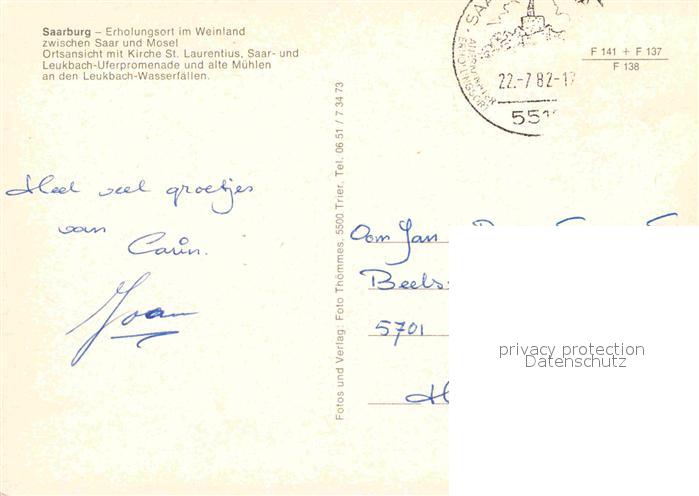 Saarburg – Erholungsort im Weinland
zwischen Saar und Mosel
Ortsansicht mit Kirche St. Laurentius, Saar- und
Leukbach-Uferpromenade und alte Mühlen
an den Leukbach-Wasserfällen.
SAA
ERHOLUNGSORT
22.-7.82-17
551
F 141 + F 137
F 138
Heel veel groetjes
van
Carin.
Joan
Fotos und Verlag: Foto Thömmes, 5500 Trier, Tel. 06 51 / 7 34 73
Oom Jan
Beels
5701
H
privacy protection
Datenschutz